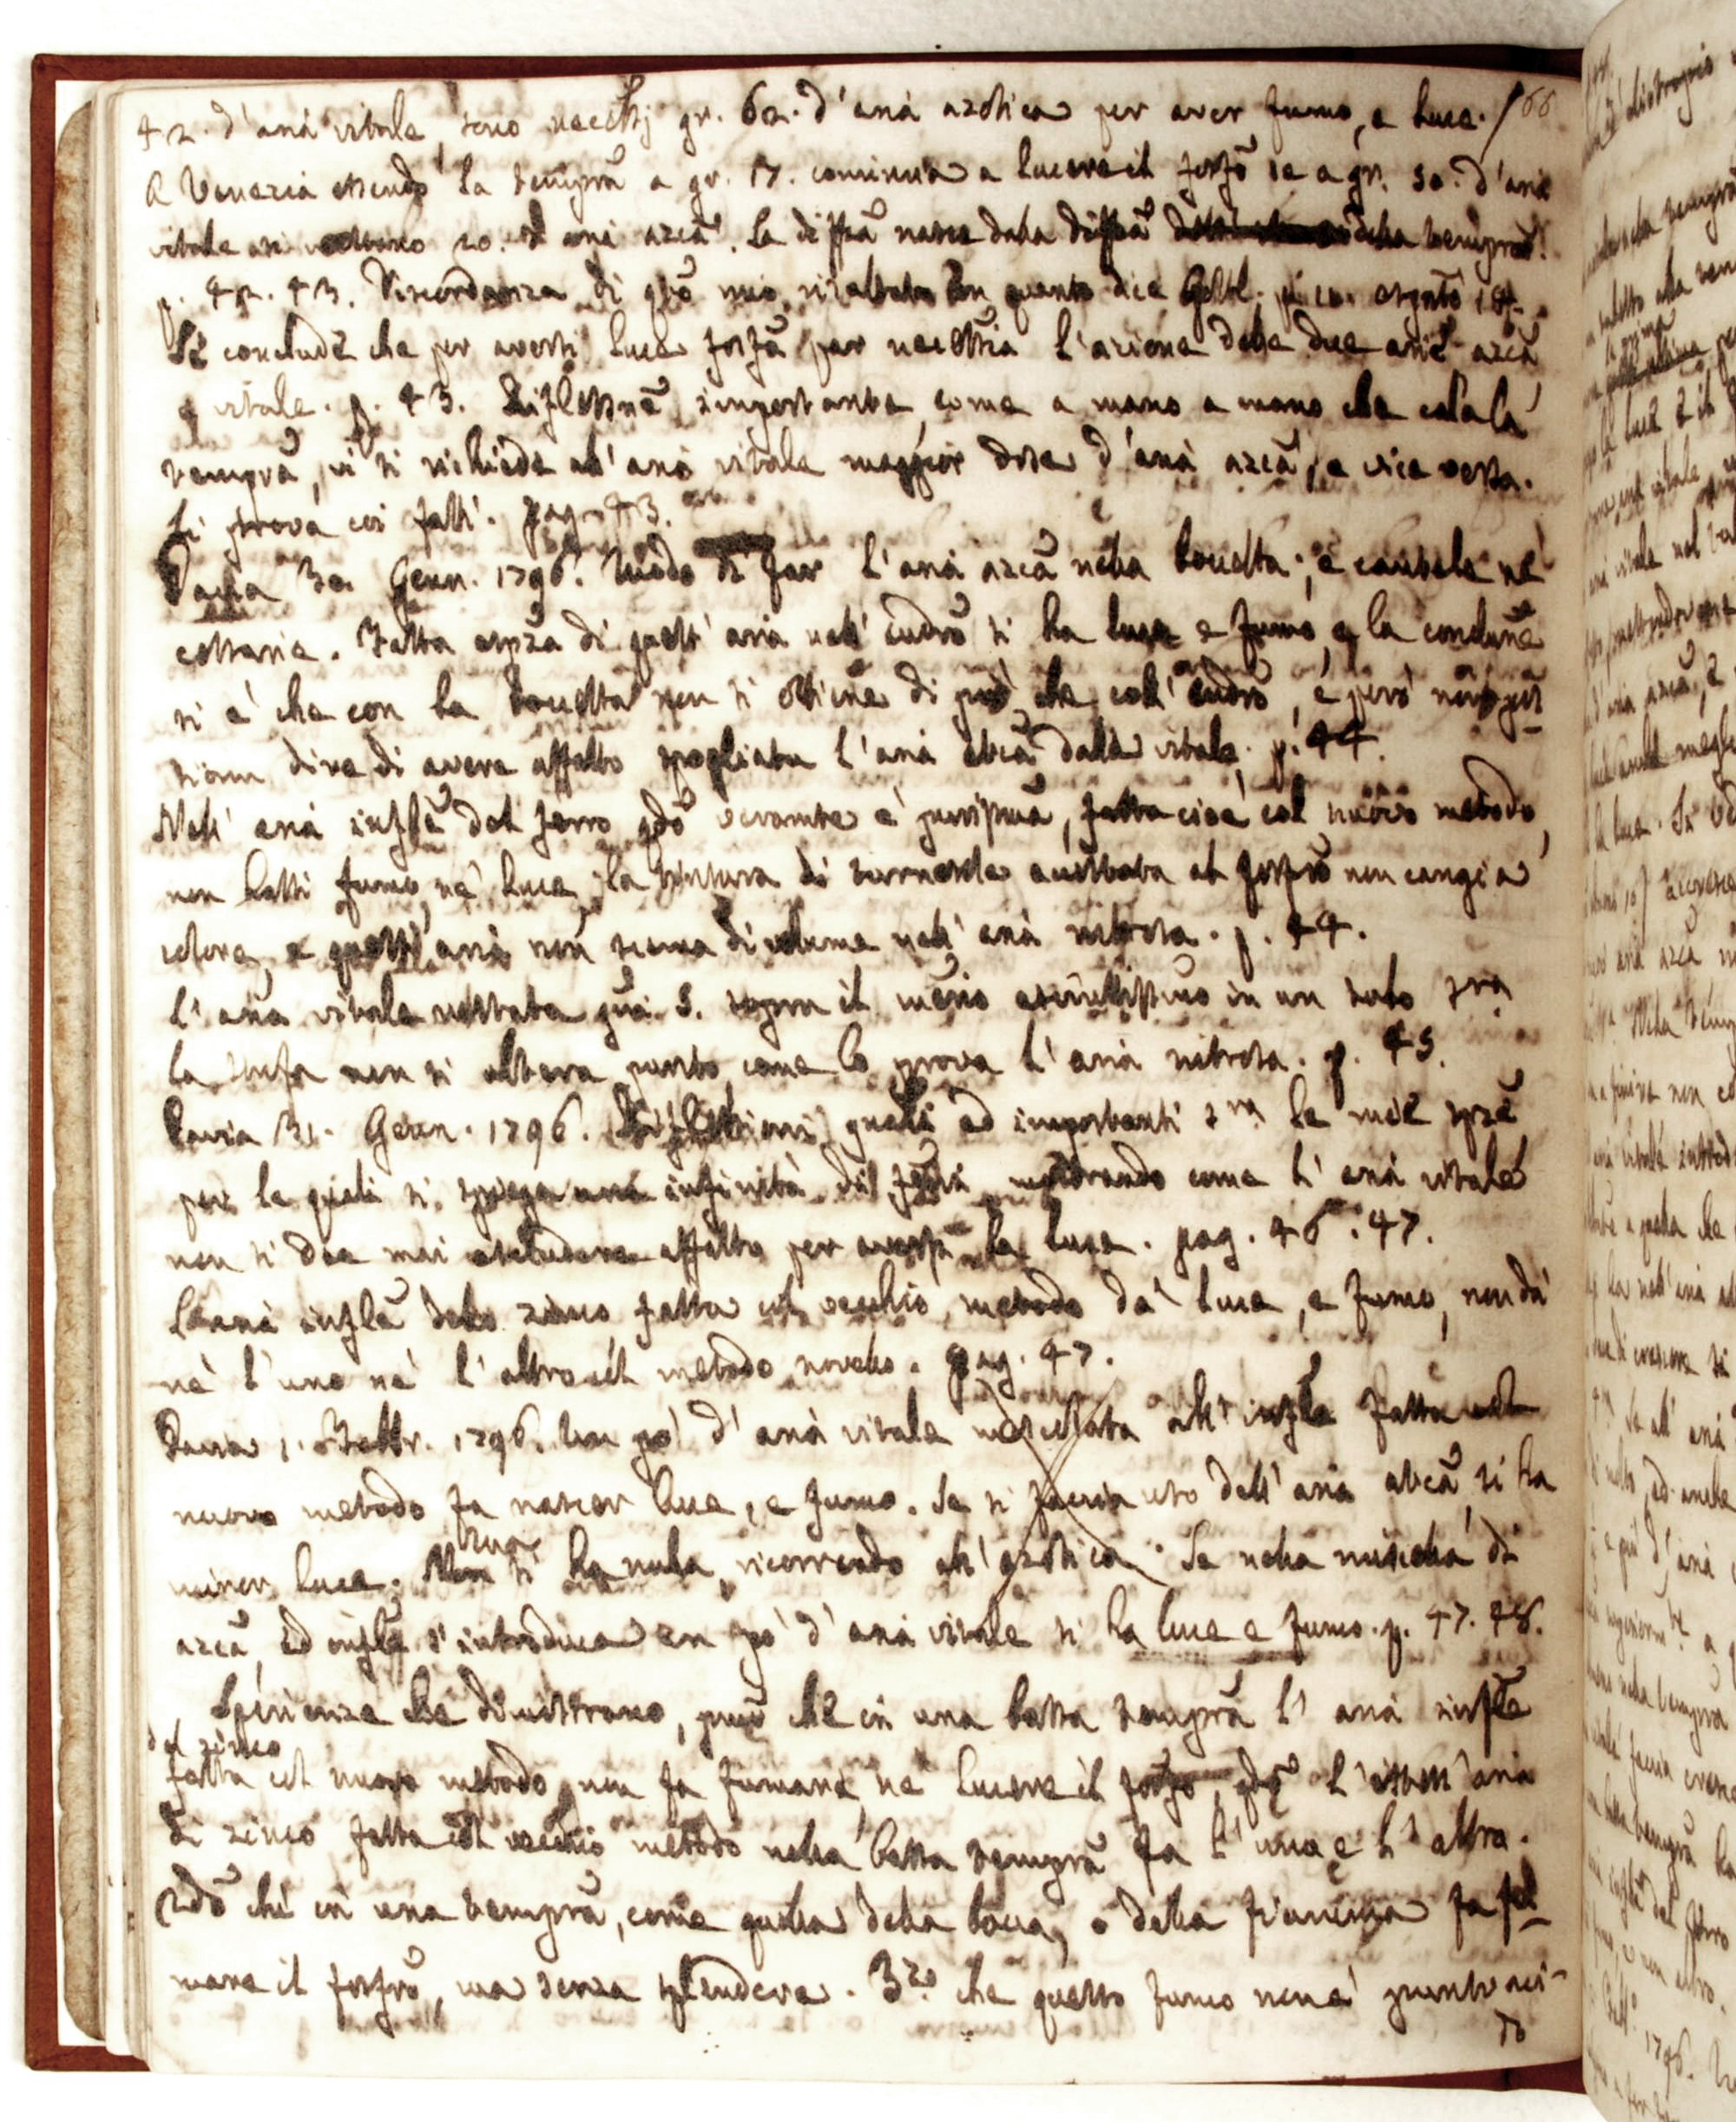 42. d'aria vitale, sono necessrj gr. 62. d'aria azotica per aver fumo, e luce. / 66
A Venezia essendo la temprã a gr. 17. comincia a lucere il fosfõ se a gr. 80. d'aria
vitale si uniscano 20. d'aria azcã. La diffzã nasce dalla diffzã della temprã.
p. 42. 43. Discordanza di qto mio risaltato con quanto dice Gottl.
Si conclude che per aversi luce fosfcã par necessria l'azione delle due arie azcã
e vitale. p. 43. Riflessnẽ importante, come a mano a mano che cala la
temprã, vi si richiede all'aria vitale maggior dose d'aria azcã, e vice versa.
Si prova coi fatti. pag. 43.
Pavia 30. Genn. 1796. Modo di far l'aria azcã nella boccetta; e cautele ne
cessarie. Fatta espza di quest'aria nell'eudrõ si ha luce e fumo, e la conclusnẽ
si è che con la boccetta non si ottiene di più che coll'eudrõ, e però non pos
siamo dire di avere affatto spogliata l'aria atcã dalla vitale. p. 44.
Nell'aria inflẽ del ferro qdõ veramte è purissima, fatta cioè col nuovo metodo,
non hassi fumo, nè luce; la tintura di tornasole accostata al fosfrõ non cangia
colore, e quest'aria non scema di volume nell'aria nitrosa. p. 44.
L'aria vitale restata gni 5. sopra il mẽrio esattissimo in un tubo sra
la stufa non si altera punto, come lo prova l'aria nitrosa. p. 45.
Pavia 31. Genn. 1796. Riflessioni grandi ed importanti sra le mie spzẽ
per le quali si spiega una infinità di fatti mostrando come l'aria vitale
non si dee mai escludere affatto per aversi la luce. pag. 46. 47.
L'aria inflẽ dello zinco fatta col vecchio metodo dà luce, e fumo, non dà
nè l'uno nè l'altro col metodo novello. pag. 47.
Pavia 1. Febbr. 1796. Un pò d'aria vitale mescolata all'inflẽ fatta col
nuovo metodo fa nascer luce, e fumo. Se si faccia uso dell'aria atcã si ha
minor luce. Non si ha nulla ricorrendo all'azotica. Se nella miscela di
azcã, ed inflẽ s'introduca un pò d'aria vitale si ha luce e fumo. p. 47. 48.
Sperienze che dimostrano, primõ che in una bassa temprã l'aria inflẽ
del zinco
fatta col nuovo metodo non fa fumare, nè lucere il fosfo, qdõ l'istess'aria
di zinco fatta col vecchio metodo nella bassa temprã fa l'una e l'altra.
2dõ che in una temprã, come quella della bocca, o della fiamma fa fu-
mare il fosfrõ, ma senza splendere. 3zo. che questo fumo non è punto aci-
do